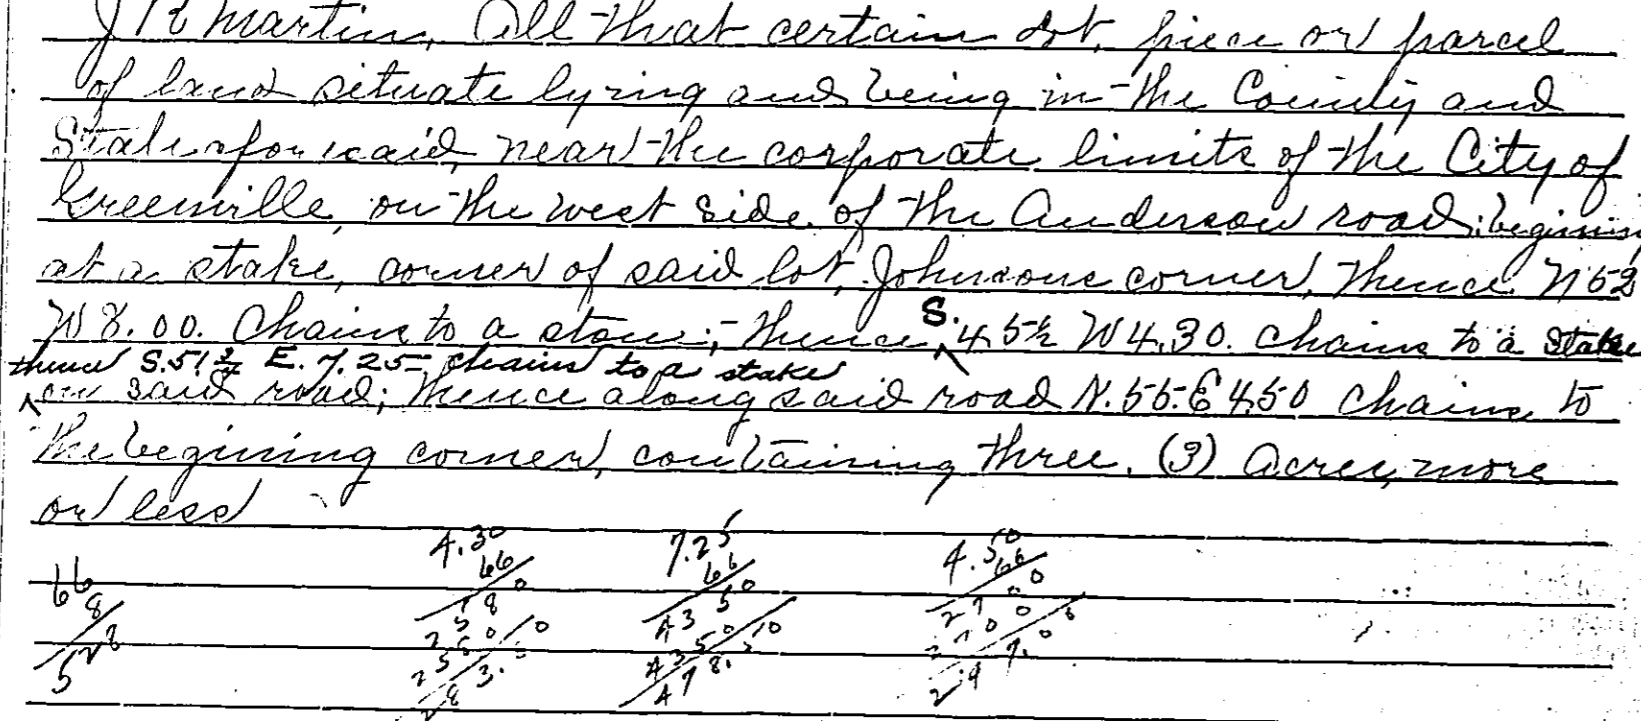 J R Martin, All that certain lot, piece or parcel
of land situate lyring and being in the County and
State aforesaid, near the corporate limits of the City of
Greenville, on the west side of the Anderson road; begining
at a stake, corner of said lot, Johnsons corner, thence N 52
W 8.00. Chains to a stone; thence S. 45½ W 4.30. chains to a stake
thence S. 51¾ E. 7.25 chains to a stake
on said road; thence along said road N. 55. E 4.50 chains to
the begining corner, containing three. (3) Acres, more
or less
4.30 7.25 4.50
66 66 66 66
8 2580 4350 2700
528 2580 4350 2700
283.80 478.50 297.00